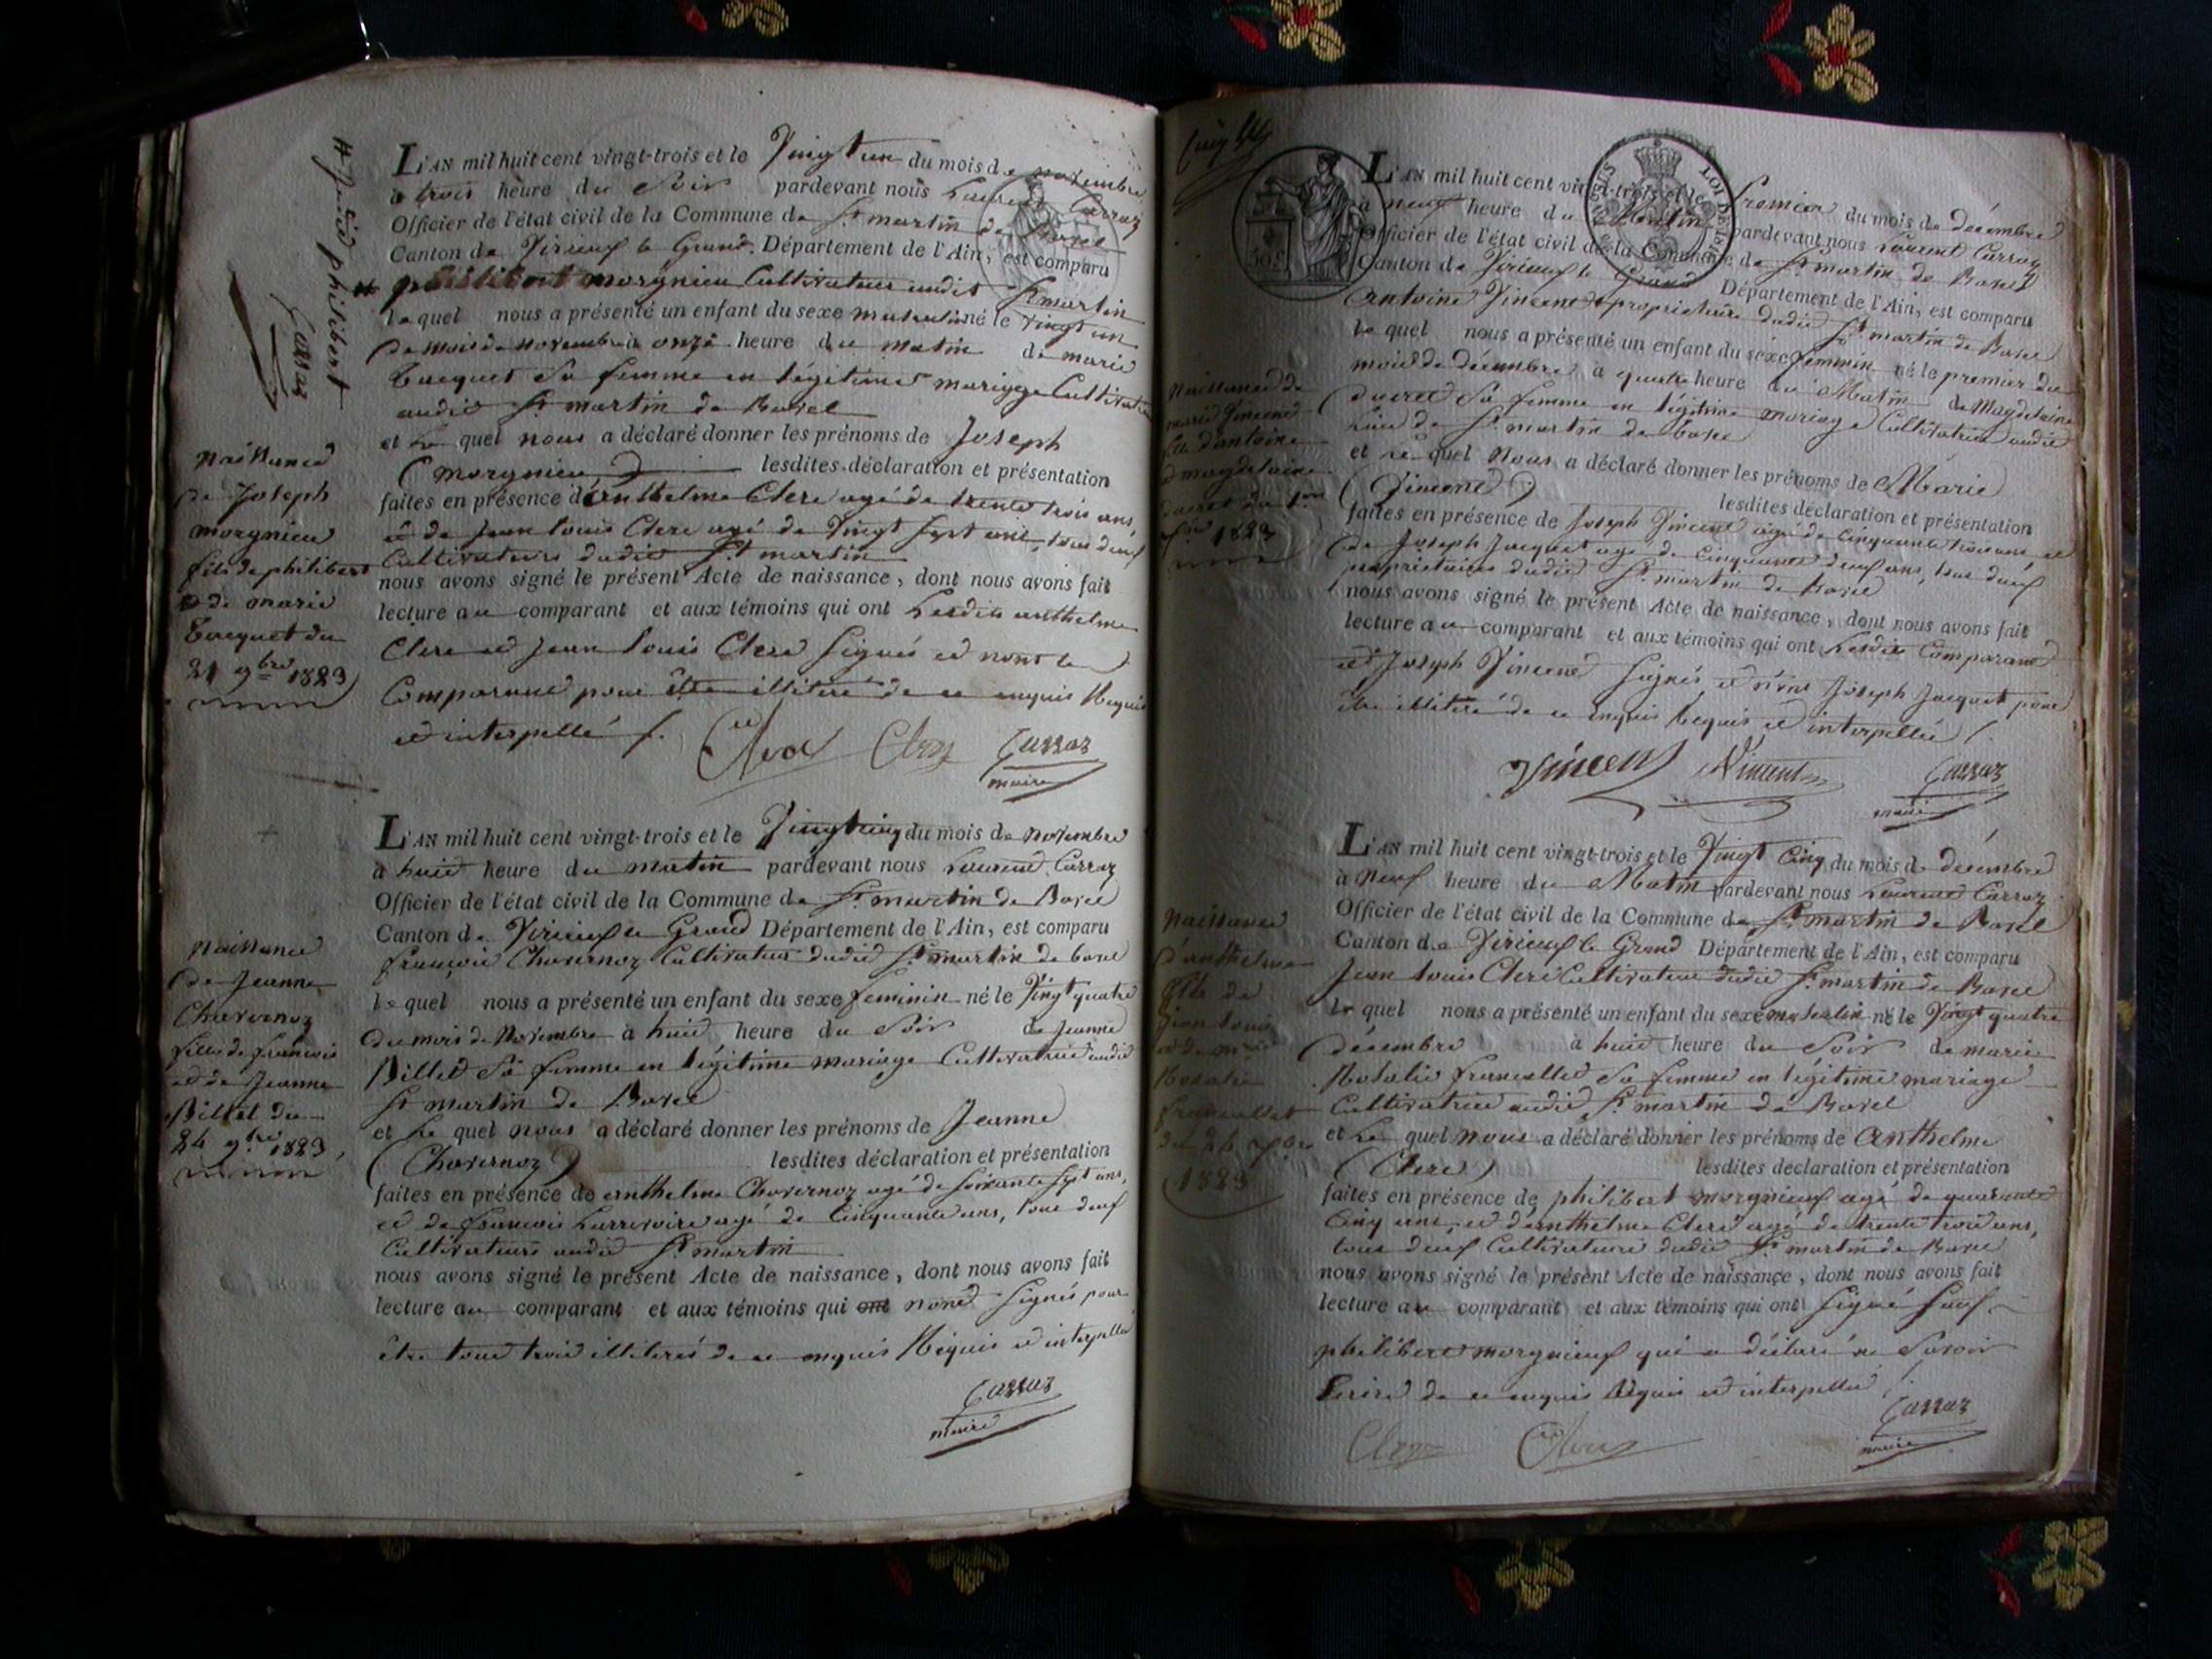 # je dis philibert
Carraz
L'AN mil huit cent vingt-trois et le Vingt un du mois de novembre
à trois heure du Soir pardevant nous Laurent Carraz
Officier de l'état civil de la Commune de St martin de Bavel
Canton de Virieux le Grand Département de l'Ain, est comparu
# philibert morgnieu Cultivateur audit St martin
lequel nous a présenté un enfant du sexe masculin né le vingt un
du mois de novembre à onze heure du matin de marie
Bacquet Sa femme en légitime mariage Cultivatrice
audit St martin de Bavel
et le quel nous a déclaré donner les prénoms de Joseph
(morgnieu) lesdites déclaration et présentation
faites en présence d'anthelme Clerc agé de trente trois ans,
et de Jean louis Clerc agé de Vingt Sept ans, tous deux
Cultivateurs dudit St martin
nous avons signé le présent Acte de naissance, dont nous avons fait
lecture au comparant et aux témoins qui ont Lesdits anthelme
Clerc et Jean louis Clerc Signés et non le
Comparant pour être illiteré de ce enquis Requis
et interpellé /.
Clerc Clerc Carraz
maire
Naissance
de Joseph
morgnieu
fils de philibert
et de marie
Bacquet du
21 9bre 1823
L'AN mil huit cent vingt-trois et le Vingt cinq du mois de novembre
à huit heure du matin pardevant nous Laurent Carraz
Officier de l'état civil de la Commune de St martin de Bavel
Canton de Virieux le Grand Département de l'Ain, est comparu
françois Chavernoz Cultivateur dudit St martin de bavel
lequel nous a présenté un enfant du sexe feminin né le Vingt quatre
du mois de Novembre à huit heure du Soir de Jeanne
Billet Sa femme en légitime mariage Cultivatrice audit
St martin de Bavel
et le quel nous a déclaré donner les prénoms de Jeanne
(Chavernoz) lesdites déclaration et présentation
faites en présence de anthelme Chavernoz agé de Soixante Sept ans,
et de francois agé de Cinquante ans, tous deux
Cultivateurs audit St martin
nous avons signé le présent Acte de naissance, dont nous avons fait
lecture au comparant et aux témoins qui ont non Signés pour
être tous trois illiterés de ce enquis Requis et interpellé
Carraz
maire
Naissance
de Jeanne
Chavernoz
fille de francois
et de Jeanne
Billet du
24 9bre 1823
50 c
TIMBRE LOI DE 1816
L'AN mil huit cent vingt-trois et le Premier du mois de décembre
à neuf heure du Matin pardevant nous Laurent Carraz
Officier de l'état civil de la Commune de St martin de Bavel
Canton de Virieux le Grand Département de l'Ain, est comparu
Antoine Vincent propriétaire dudit St martin de Bavel
le quel nous a présenté un enfant du sexe femmin né le premier du
mois de décembre à quatre heure du Matin de Magdelaine
Ducret Sa femme en légitime mariage Cultivatrice audit
Lieu de St martin de bavel
et le quel Nous a déclaré donner les prénoms de Marie
(Vincent) lesdites déclaration et présentation
faites en présence de Joseph Vincent agé de cinquante trois ans et
de Joseph Jacquet agé de cinquante deux ans, tous deux
propriétaires dudit St martin de Bavel
nous avons signé le présent Acte de naissance, dont nous avons fait
lecture au comparant et aux témoins qui ont Lesdits Comparant
et Joseph Vincent Signés et non Joseph Jacquet pour
être illiteré de ce enquis Requis et interpellé /.
Vincent Vincent Carraz
maire
Naissance de
marie Vincent
fille d'antoine
magdelaine
ducret du 1er
1823
L'AN mil huit cent vingt-trois et le Vingt Cinq du mois de décembre
à Neuf heure du Matin pardevant nous Laurent Carraz
Officier de l'état civil de la Commune de St martin de Bavel
Canton de Virieux le Grand Département de l'Ain, est comparu
Jean louis Clerc Cultivateur dudit St martin de Bavel
le quel nous a présenté un enfant du sexe masculin né le Vingt quatre
décembre à huit heure du Soir de marie
Rosalie francallet Sa femme en légitime mariage
Cultivatrice audit St martin de Bavel
et le quel nous a déclaré donner les prénoms de Anthelme
(Clerc) lesdites declaration et présentation
faites en présence de philibert morgnieux agé de quarante
Cinq ans, et d'anthelme Clerc agé de trente trois ans,
tous deux Cultivateurs dudit St martin de Bavel
nous avons signé le présent Acte de naissance, dont nous avons fait
lecture au comparant et aux témoins qui ont Signé Sauf
philibert morgnieux qui a déclaré ne Savoir
Ecrire de ce enquis Requis et interpellé /.
Clerc Clerc Carraz
maire
Naissance
d'anthelme
fils de
jean louis
et de mrie
Rosalie
francallet
du 24
1823